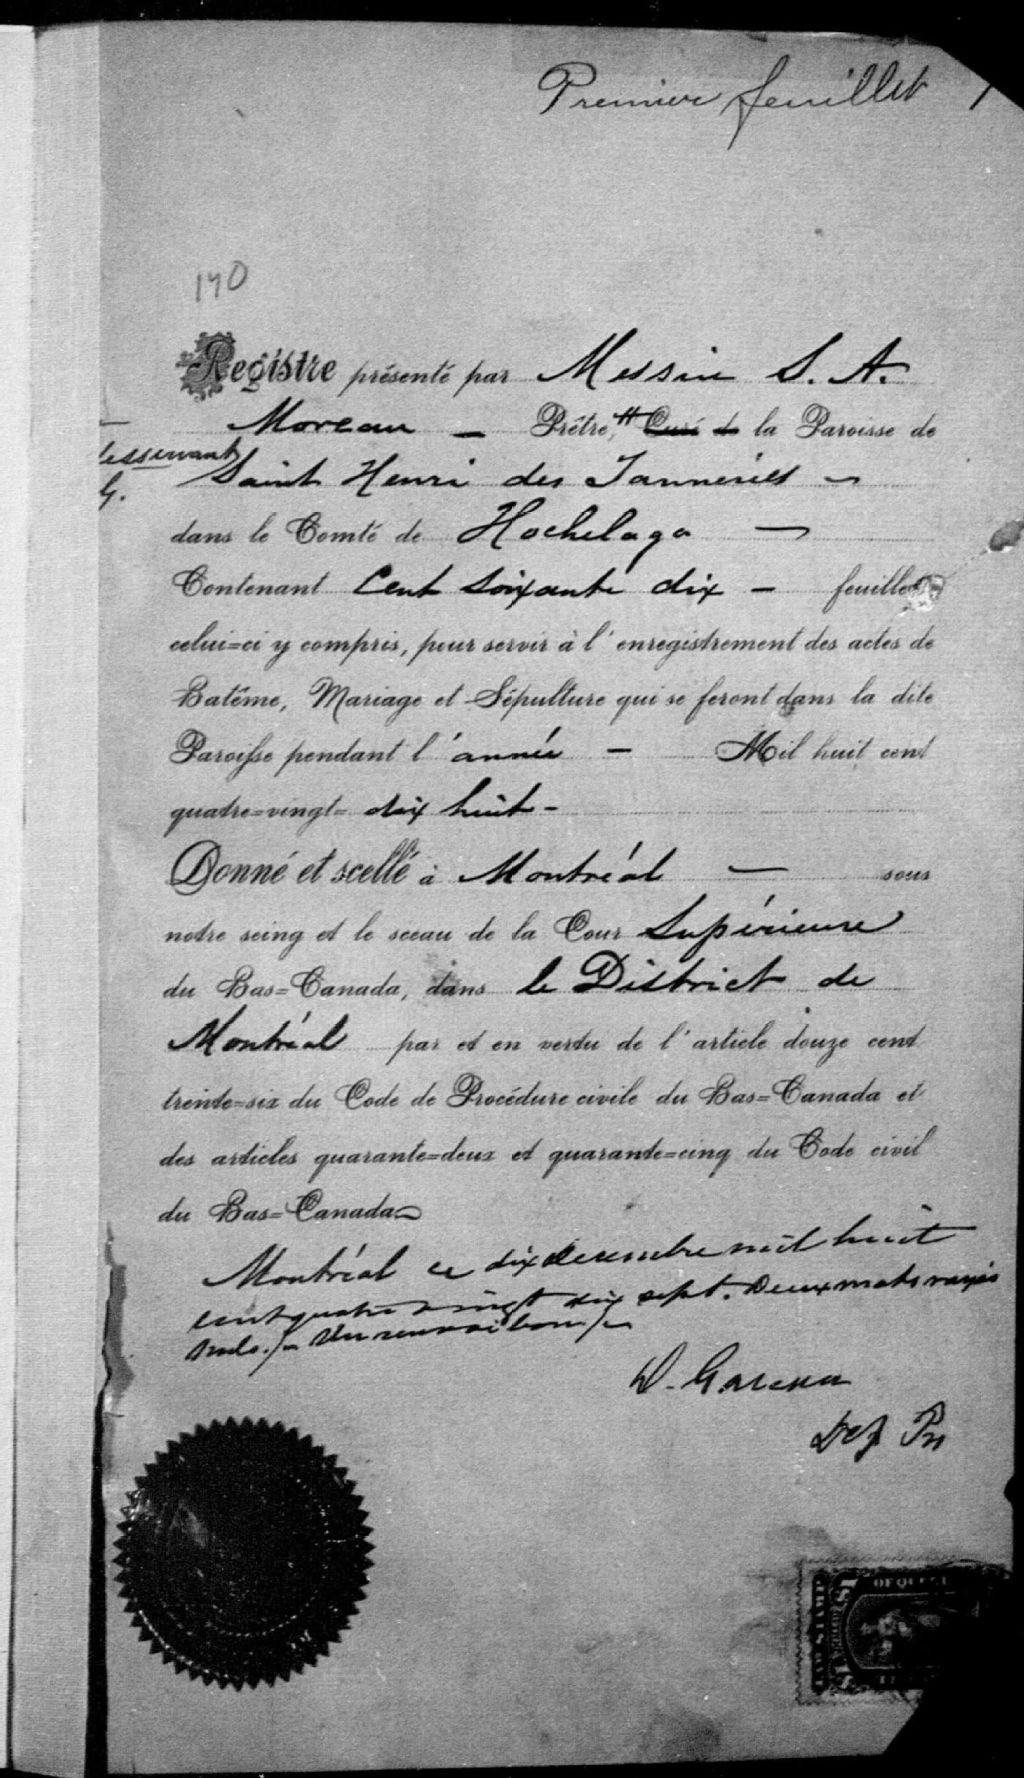 Premier feuillet 1
190
Registre présenté par Messire S. A.
Moreau — Prêtre, # Curé de la Paroisse de
desservant
G.
Saint Henri des Tanneries —
dans le Comté de Hochelaga —
Contenant Cent soixante dix — feuillets
celui=ci y compris, pour servir à l'enregistrement des actes de
Batême, Mariage et Sépulture qui se feront dans la dite
Paroisse pendant l'année — Mil huit cent
quatre=vingt= dix huit —
Donné et scellé à Montréal — sous
notre seing et le sceau de la Cour Supérieure
du Bas=Canada, dans le District de
Montréal par et en vertu de l'article douze cent
trente=six du Code de Procédure civile du Bas=Canada et
des articles quarante=deux et quarante=cinq du Code civil
du Bas=Canada
Montréal ce dix decembre mil huit
cent quatre vingt dix sept. Deux mots rayés
nuls./. Un renvoi bon/.
Dep Pr
OF QU